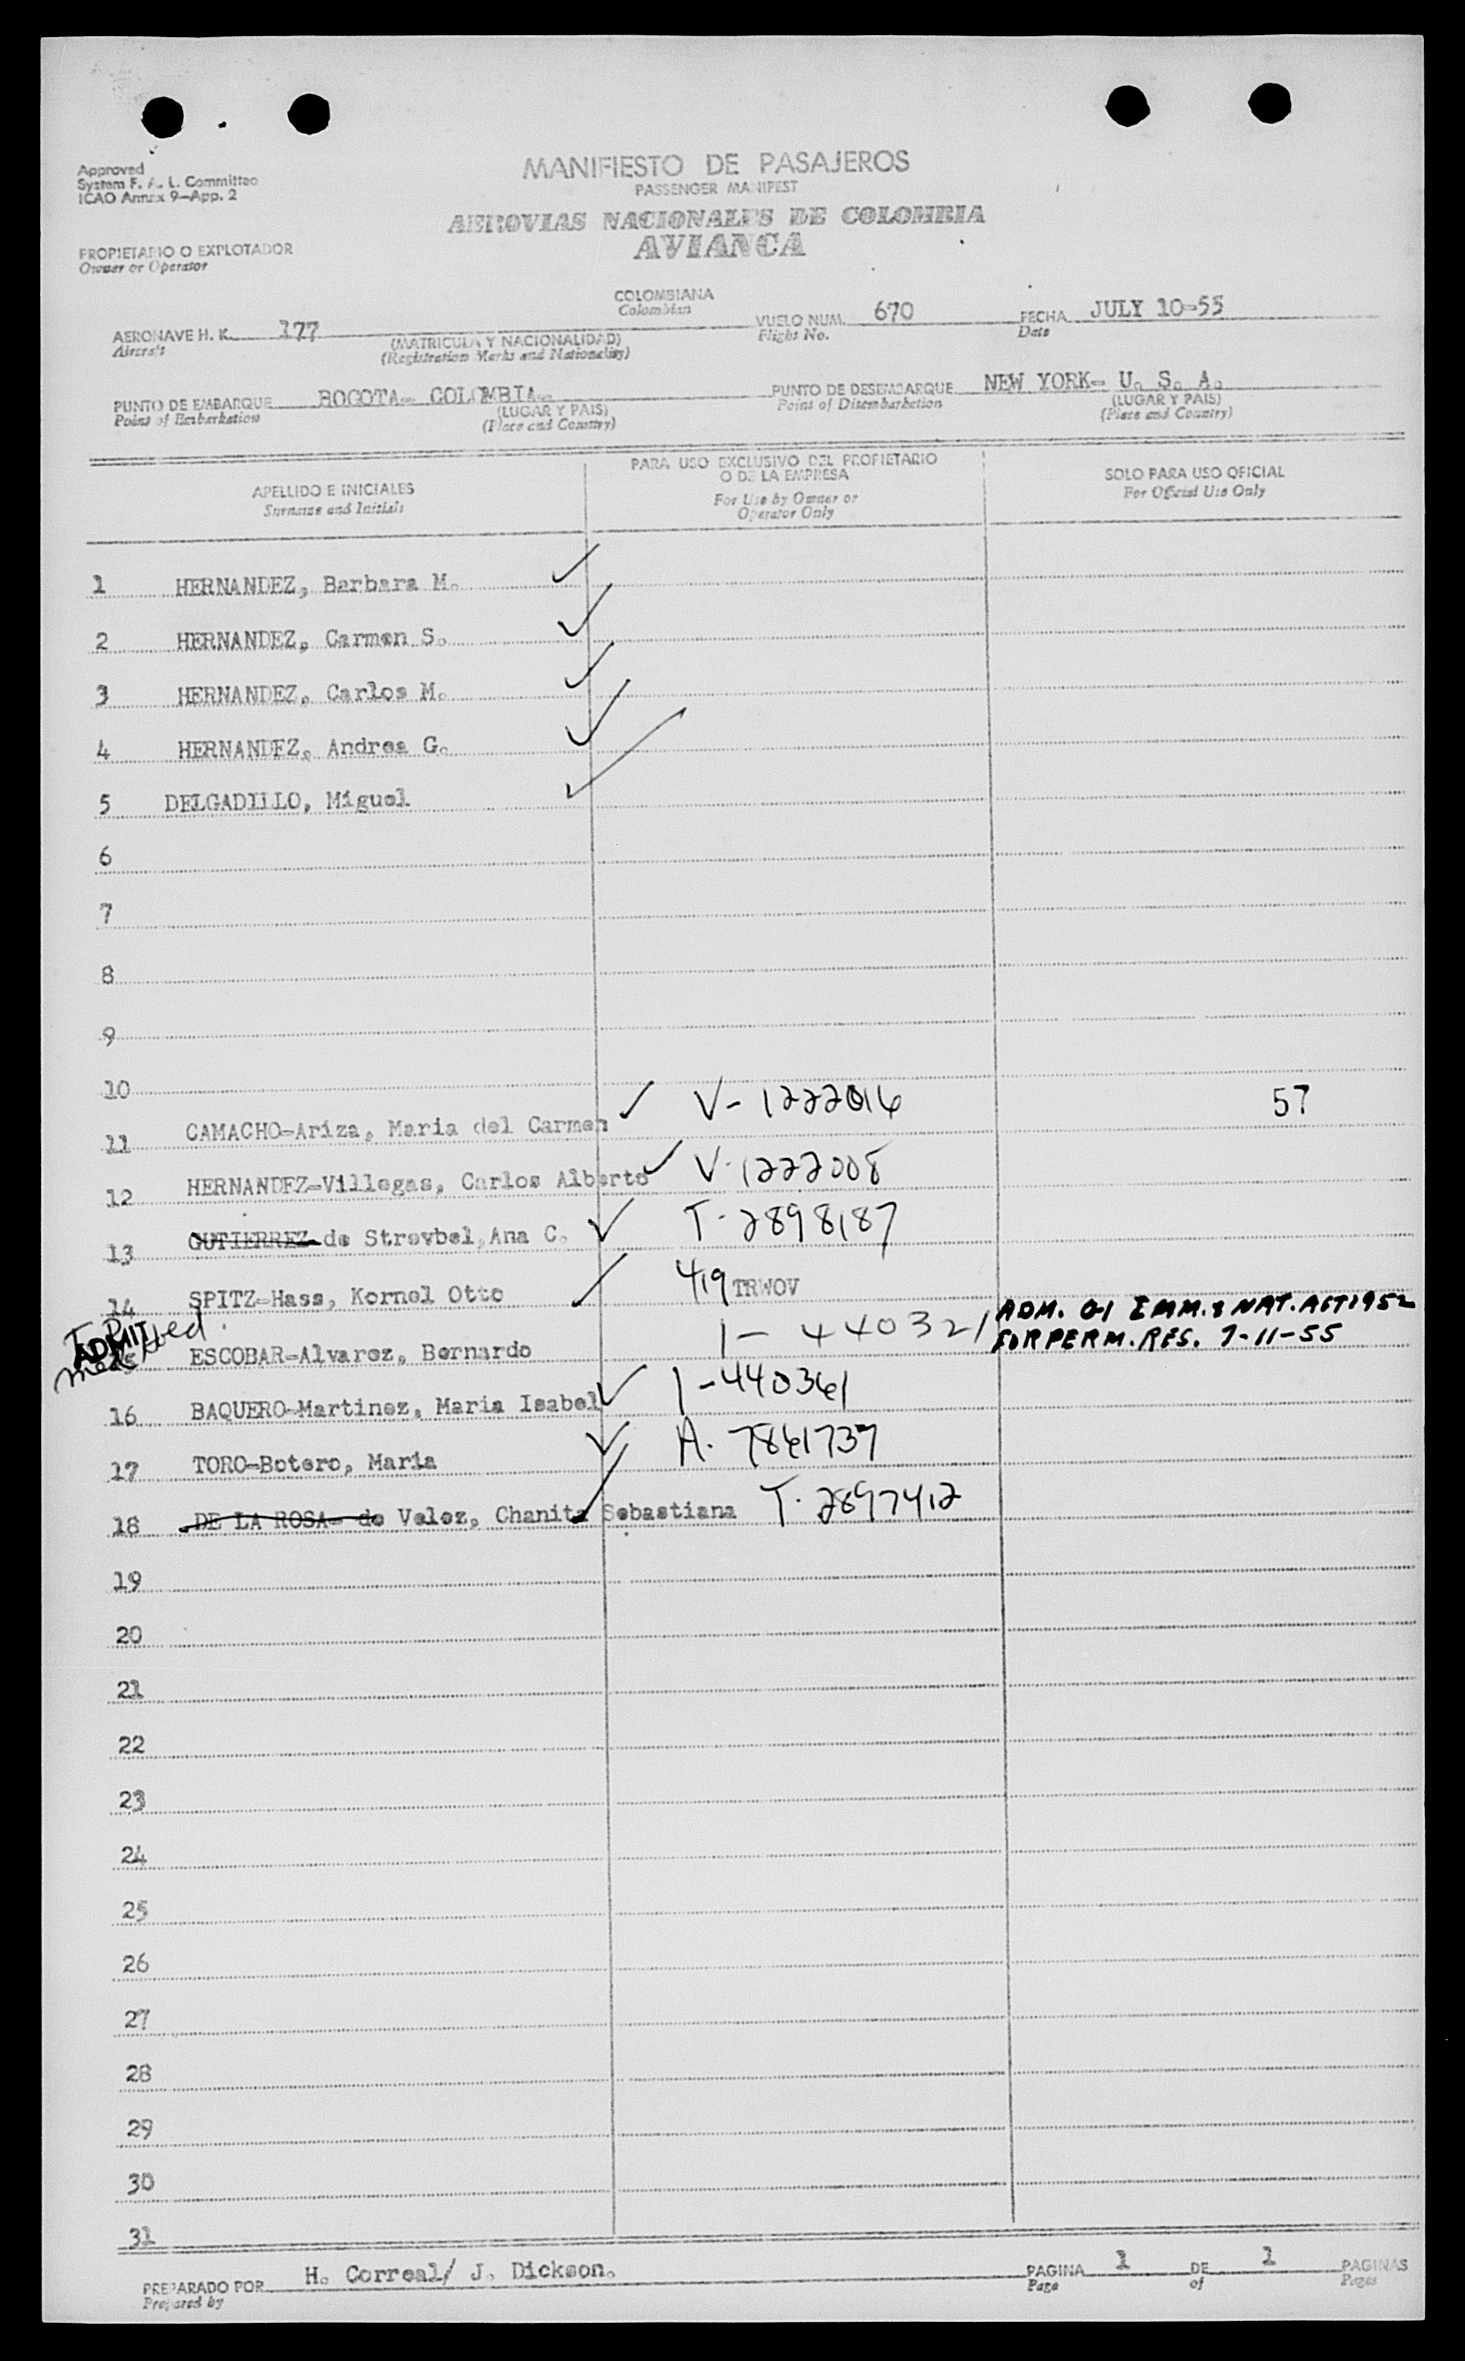 Approved
System F. A. L. Committee
ICAO Annex 9—App. 2
MANIFIESTO DE PASAJEROS
PASSENGER MANIFEST
AEROVIAS NACIONALES DE COLOMBIA
AVIANCA
PROPIETARIO O EXPLOTADOR
Owner or Operator
COLOMBIANA
Colombian
AERONAVE H. K. 177 VUELO NUM. 670 FECHA JULY 10-55
Aircraft (MATRICULA Y NACIONALIDAD) Flight No. Date
(Registration Marks and Nationality)
PUNTO DE EMBARQUE BOGOTA- COLOMBIA- PUNTO DE DESEMBARQUE NEW YORK- U. S. A.
Point of Embarkation (LUGAR Y PAIS) Point of Disembarkation (LUGAR Y PAIS)
(Place and Country) (Place and Country)
APELLIDO E INICIALES
Surname and Initials
PARA USO EXCLUSIVO DEL PROPIETARIO
O DE LA EMPRESA
For Use by Owner or
Operator Only
SOLO PARA USO OFICIAL
For Official Use Only
1 HERNANDEZ, Barbara M. ✓
2 HERNANDEZ, Carmen S. ✓
3 HERNANDEZ, Carlos M. ✓
4 HERNANDEZ, Andrea G. ✓
5 DELGADILLO, Miguel ✓
6
7
8
9
10
11 CAMACHO-Ariza, Maria del Carmen ✓ V-1222016 57
12 HERNANDEZ-Villegas, Carlos Alberto ✓ V-1222008
13 GUTIERREZ de Strevbel, Ana C. ✓ T-2898187
14 SPITZ-Hass, Kornel Otto ✓ 419 TRWOV
ADMIT
15 ESCOBAR-Alvarez, Bernardo 1-440321 ADM. O-1 IMM. & NAT. ACT 1952
FOR PERM. RES. 7-11-55
16 BAQUERO-Martinez, Maria Isabel ✓ 1-440361
17 TORO-Botero, Maria ✓ A-7861737
18 DE LA ROSA- de Velez, Chanita Sebastiana ✓ T-2897412
19
20
21
22
23
24
25
26
27
28
29
30
31
PREPARADO POR H. Correal/ J. Dickson. PAGINA 1 DE 1 PAGINAS
Prepared by Page of Pages